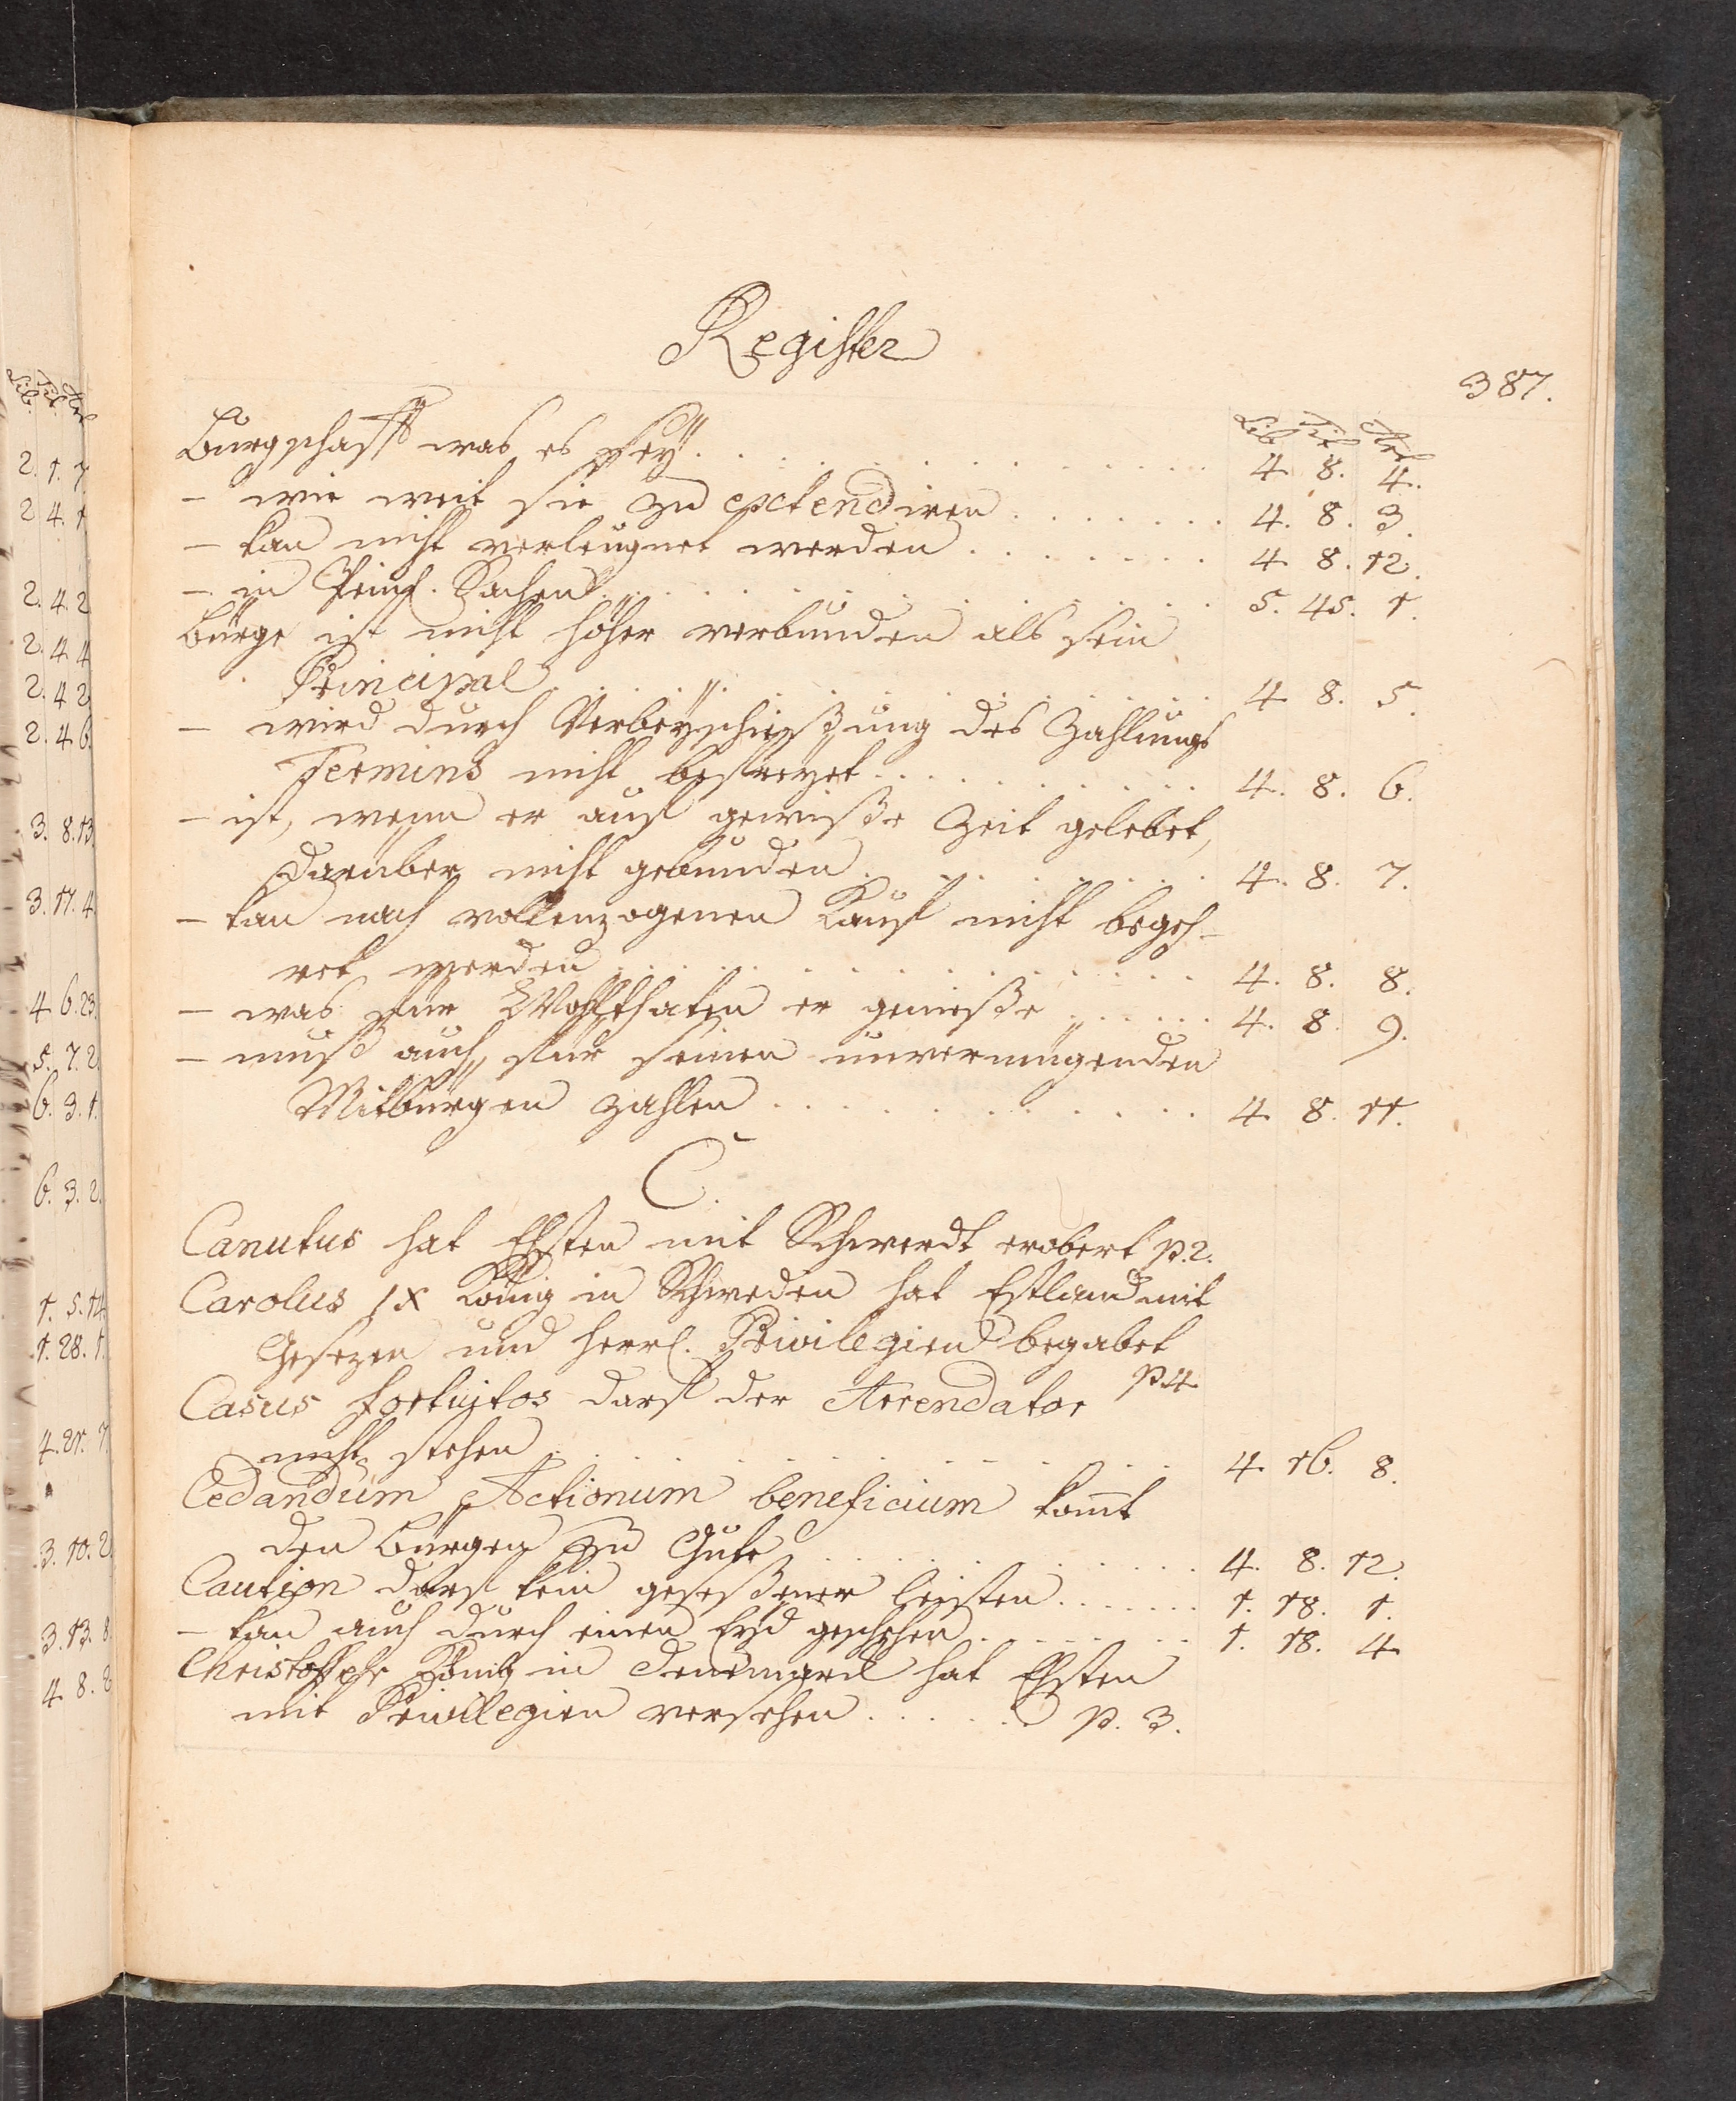 Register
387.
Lib. Tit. Art.
Bürgschafft was es sey . . . . . 4. 8. 4.
– wie weit sie zu extendiren . . . . . 4. 8. 3.
– kan nicht verleugnet werden . . . . . 4. 8. 12.
– in Peinl. Sachen . . . . . 5. 45. 1.
Bürge ist nicht höher verbunden als sein
Principal . . . . . 4. 8. 5.
– wird durch Verbeyschießung des Zahlungs
Termins nicht befreyet . . . . . 4. 8. 6.
– ist, wenn er auf gewiße Zeit gelobet,
darüber nicht gebunden . . . . . 4. 8. 7.
– kan nach vollenzogenen Kauf nicht begeh-
ret werden . . . . . 4. 8. 8.
– was für Wohlthaten er genieße . . . . . 4. 8. 9.
– muß auch für seinen unvermögenden
Mitbürgen zahlen . . . . . 4. 8. 11.
C.
Canutus hat Ehsten mit Schwerdt erobert p. 2.
Carolus IX König in Schweden hat Estland mit
Gesezen und herrl. Privilegien begabet
p. 4.
Casus fortuitos darf der Arrendator
nicht stehen . . . . . 4. 16. 8.
Cedandum Actionum beneficium komt
den Bürgen zu Gute . . . . . 4. 8. 12.
Caution darf kein geseßener leisten . . . . . 1. 18. 1.
– kan auch durch einen Eyd geschehen . . . . . 1. 18. 4.
Christoffehr König in Dennemarck hat Ehsten
mit Privilegien versehen . . . . . p. 3.
Lib. Tit. Art.
2. 1. 7.
2. 4. 1.
2. 4. 2.
2. 4. 4.
2. 4. 2.
2. 4. 6.
3. 8. 13.
3. 17. 4.
4. 6. 23.
5. 7. 2.
6. 3. 1.
6. 3. 2.
1. 5. 14.
1. 28. 1.
4. 21. 7.
3. 10. 2.
3. 13. 8.
4. 8. 2